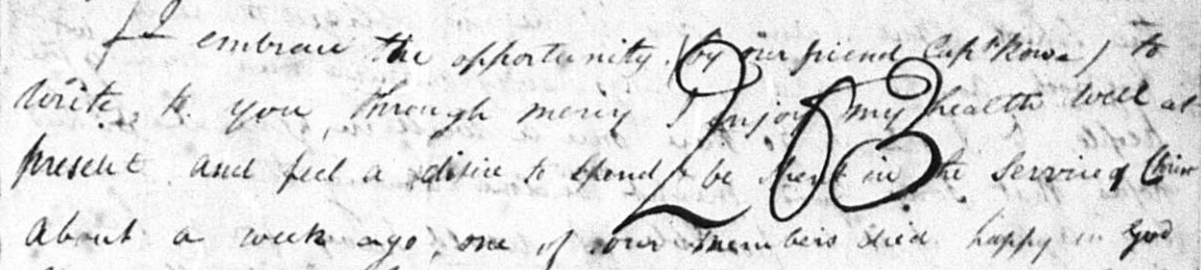 I embrace the opportunity (by our friend Capt Rowe) to
write to you, through mercy I enjoy my health well at
present and feel a desire to spend & be spent in the service of Christ
263
About a week ago, one of our members died happy in God